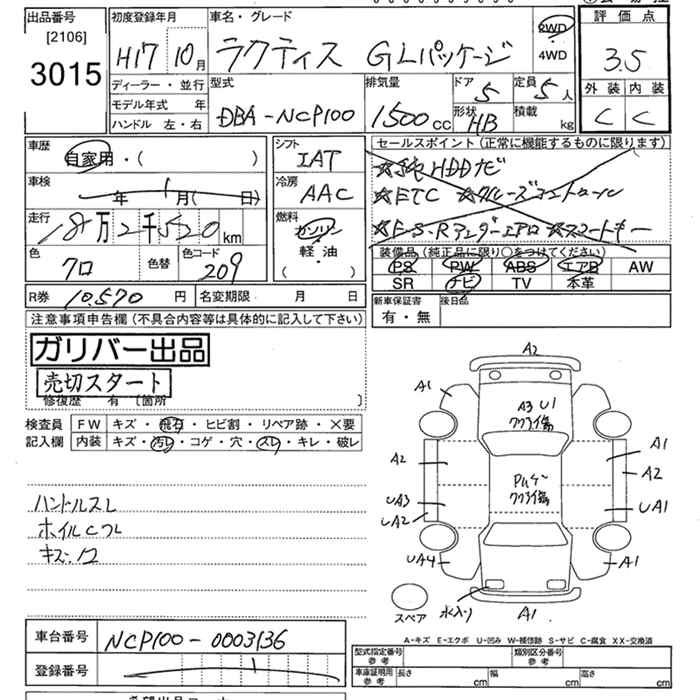 出品番号 初度登録年月 車名・グレード 評価点
[2106]
3015 H17 10月 ラクティス GLパッケージ 2WD 4WD 3.5
ディーラー・並行 型式 排気量 ドア 定員 外装 内装
モデル年式 年 DBA-NCP100 1500cc 5 5人 C C
ハンドル 左・右 形状 HB 積載 kg
車歴 シフト セールスポイント(正常に機能するものに限ります)
自家用・( ) IAT ☆純HDDナビ
車検 年 月( 日) 冷房 AAC ☆ETC ☆クルーズコントロール
走行 18万2千520km 燃料 ガソリン ☆F・S・Rアンダーエアロ ☆スマートキー
軽油 ( )
色 クロ 色替 色コード 209 装備品(純正品に限り○をつけてください)
PS PW ABS エアB AW
SR ナビ TV 本革
R券 10,570円 名変期限 月 日 新車保証書 後日品
有・無
注意事項申告欄(不具合内容等は具体的に記入して下さい)
ガリバー出品
売切スタート
修復歴 有[箇所 ]
検査員 FW キズ・飛石・ヒビ割・リペア跡・×要
記入欄 内装 キズ・汚レ・コゲ・穴・スレ・キレ・破レ
ハンドルスレ
ホイルCフレ
キズ:ワ
A2
A1
A3 U1
ククライ傷
A2 A1
A2
PルーゲA
ククライ傷
UA3 UA1
UA2
UA4 A1
スペア 水入り A1
A-キズ E-エクボ U-凹み W-補修跡 S-サビ C-腐食 XX-交換済
車台番号 NCP100-0003136
型式指定番号 参考 類別区分番号 参考
登録番号
車庫証明用 参考 長さ cm 幅 cm 高さ cm